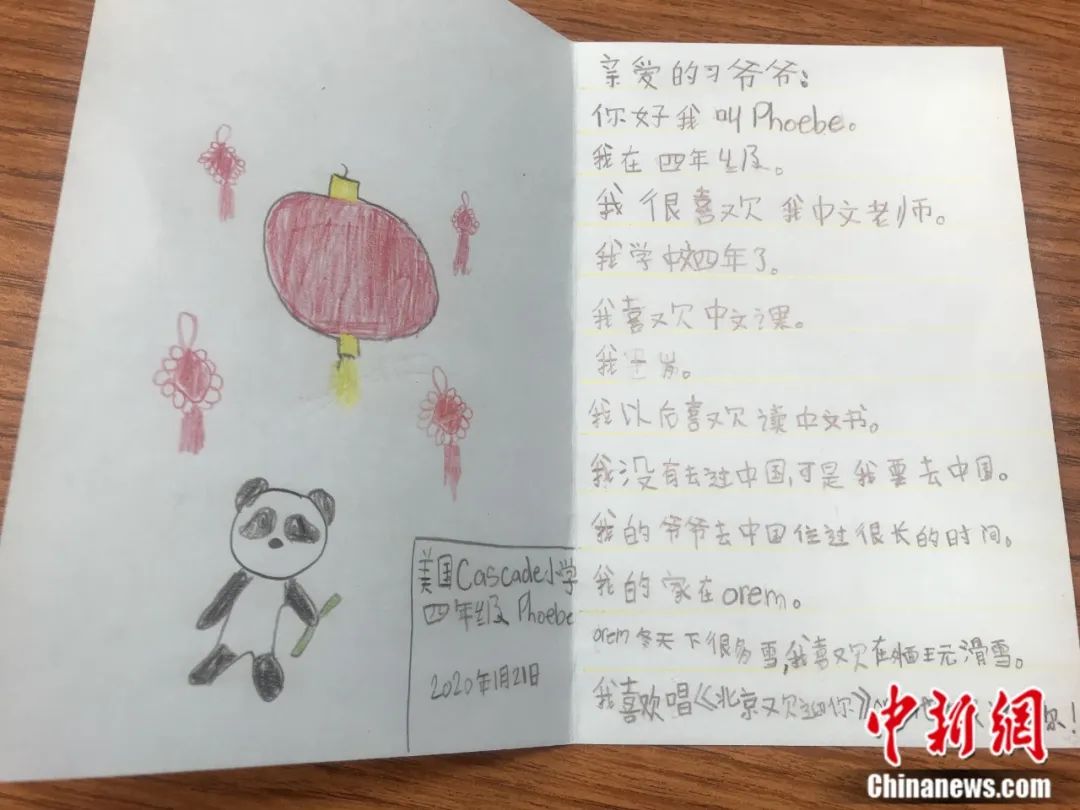 美国Cascade小学
四年级 Phoebe
2020年1月21日
亲爱的习爷爷：
你好我叫Phoebe。
我在四年级。
我很喜欢我中文老师。
我学中文四年了。
我喜欢中文课。
我 岁。
我以后喜欢读中文书。
我没有去过中国,可是我要去中国。
我的爷爷去中国住过很长的时间。
我的家在orem。
orem冬天下很多雪,我喜欢在 滑雪。
我喜欢唱《北京欢迎你》 你!
中新网
Chinanews.com